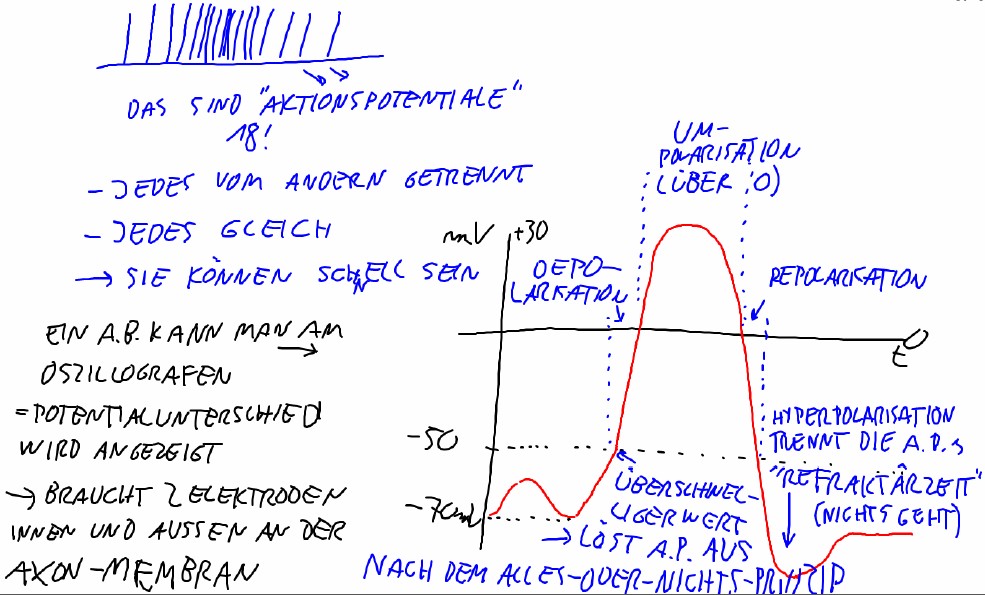 DAS SIND "AKTIONSPOTENTIALE"
18!
- JEDES VOM ANDERN GETRENNT
- JEDES GLEICH
→ SIE KÖNNEN SCHNELL SEIN
EIN A.P. KANN MAN AM
OSZILLOGRAFEN
= POTENTIALUNTERSCHIED
WIRD ANGEZEIGT
→ BRAUCHT 2 ELEKTRODEN
INNEN UND AUSSEN AN DER
AXON-MEMBRAN
UM-
POLARISATION
(ÜBER 0)
mV +30
DEPO-
LARISATION
REPOLARISATION
0
t
-50
-70mV
HYPERPOLARISATION
TRENNT DIE A.P.s
"REFRAKTÄRZEIT"
(NICHTS GEHT)
ÜBERSCHWEL-
LIGERWERT
→ LÖST A.P. AUS
NACH DEM ALLES-ODER-NICHTS-PRINZIP